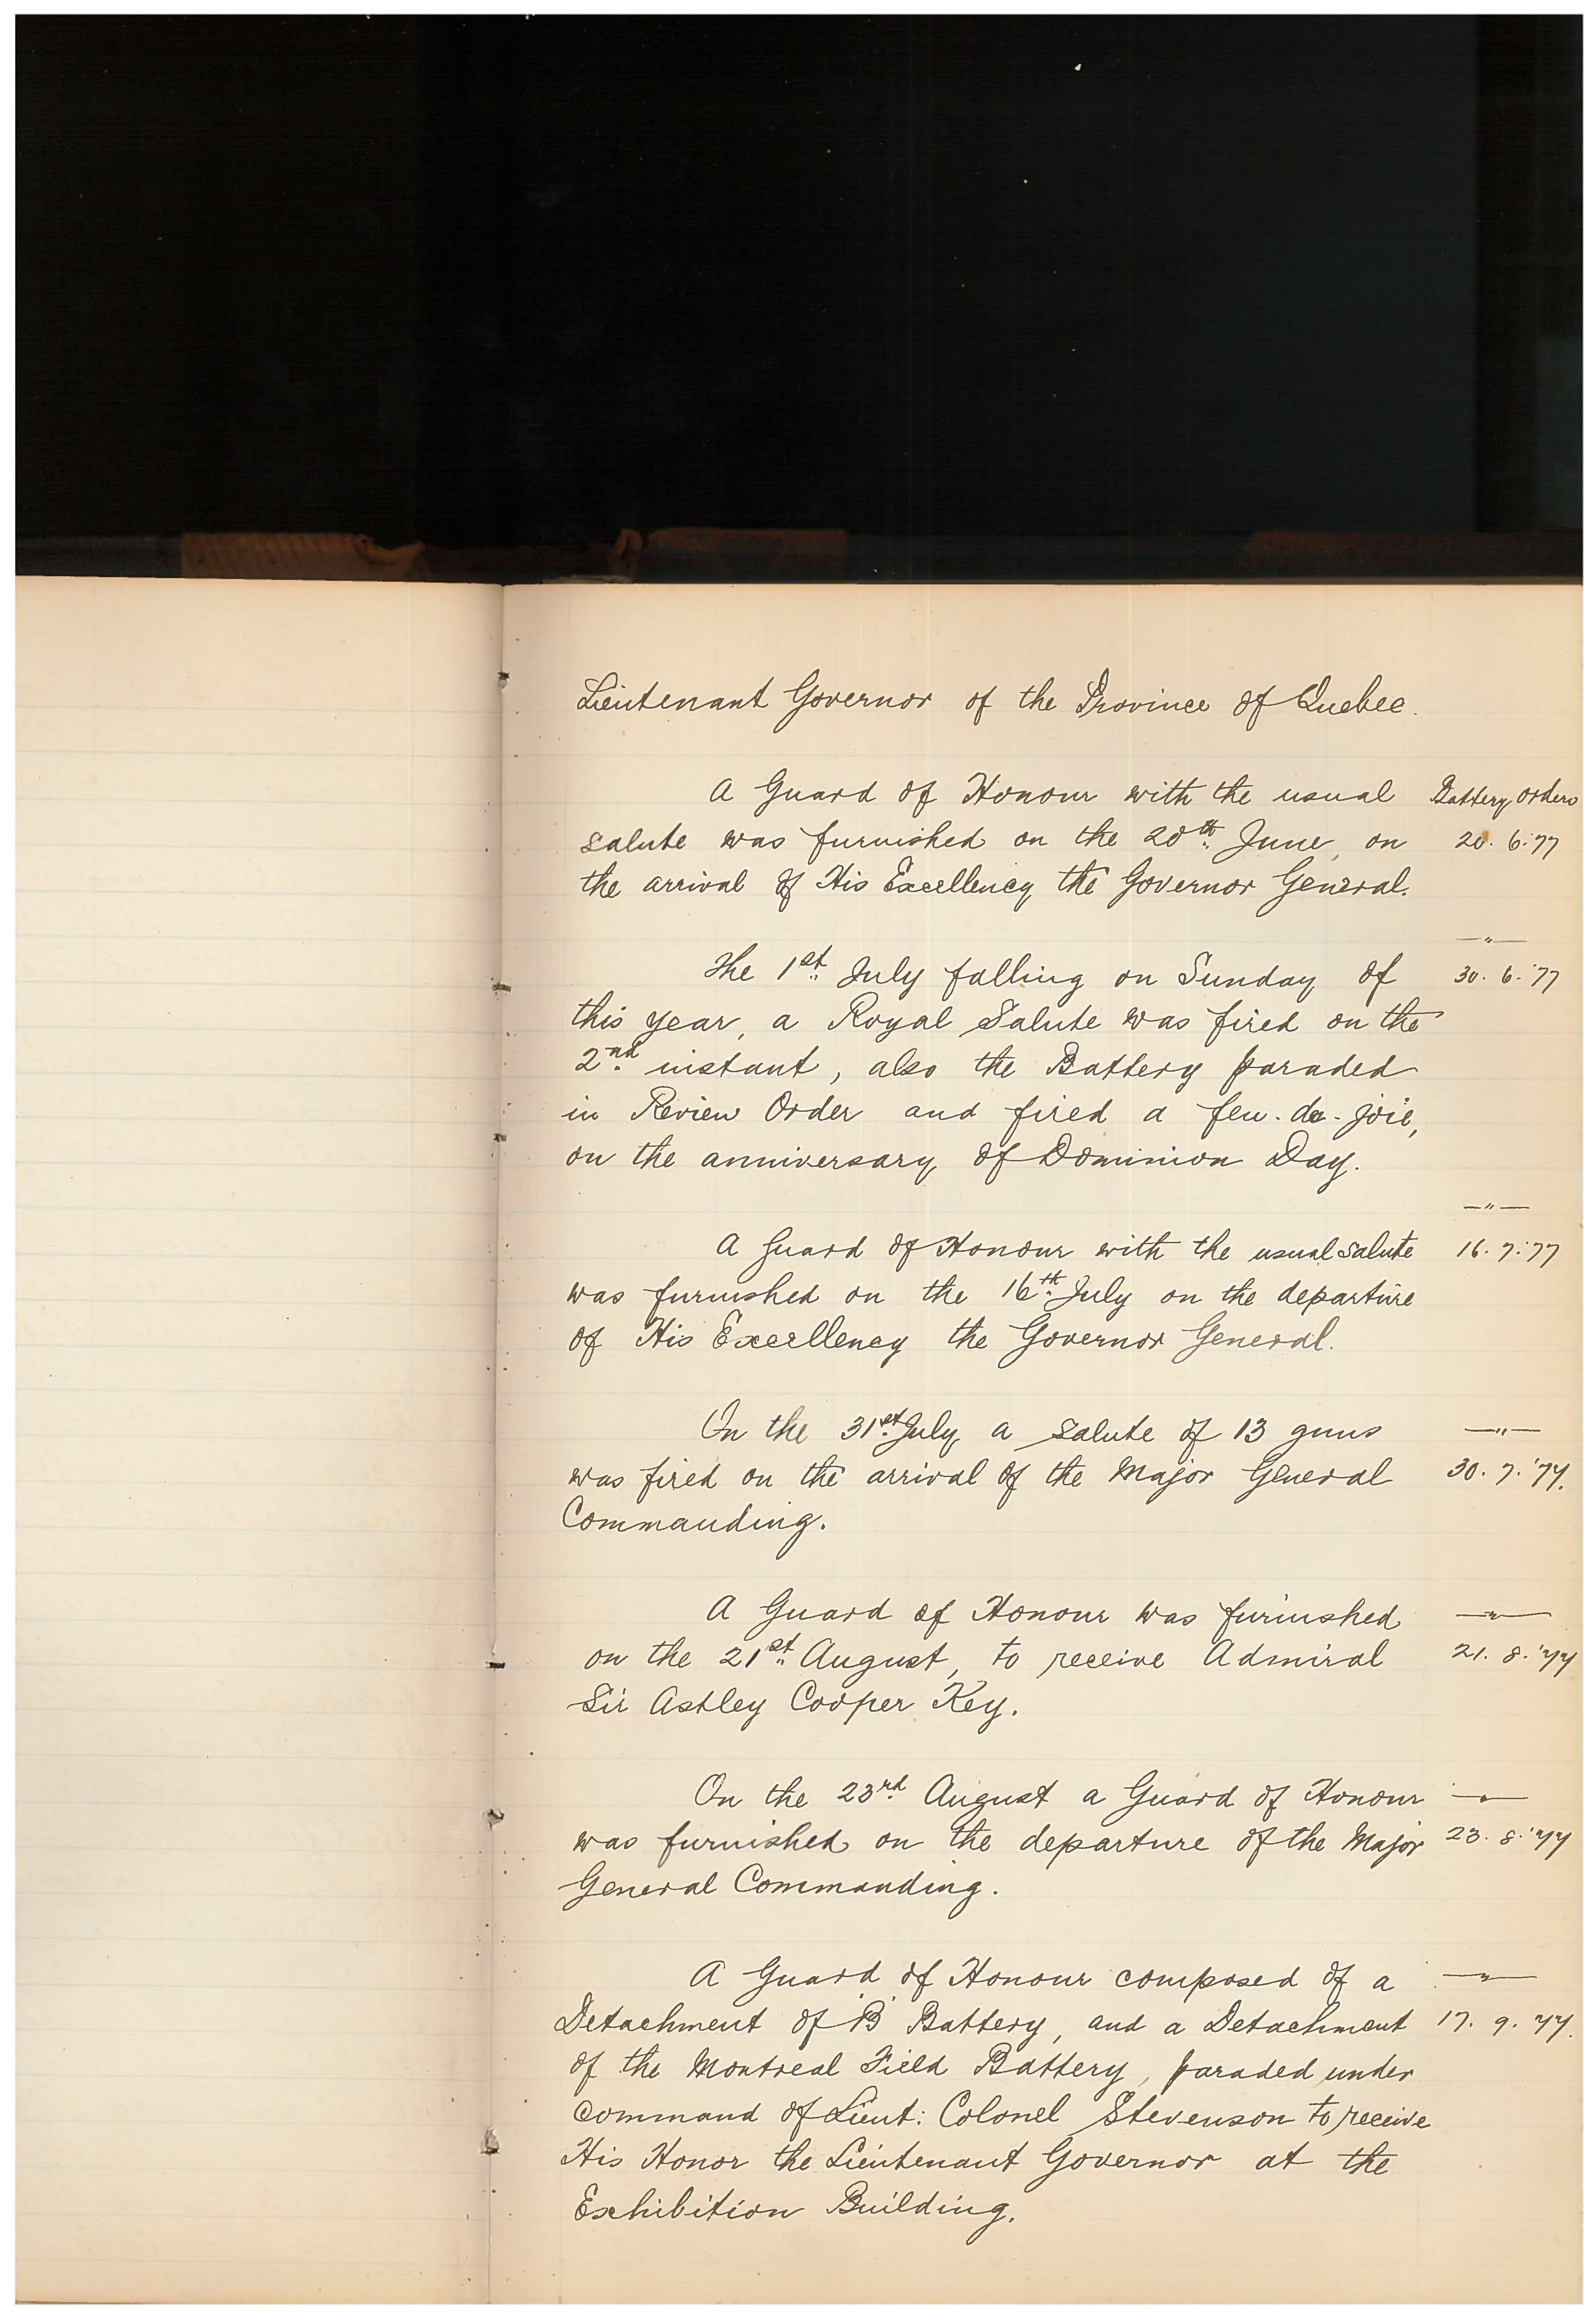 Lieutenant Governor of the Province of Quebec.
A Guard of Honour with the usual Battery Orders
salute was furnished on the 20th June, on 20. 6. '77
the arrival of His Excellency the Governor General.
—"—
The 1st July falling on Sunday of 30. 6. '77
this year, a Royal Salute was fired on the
2nd instant, also the Battery paraded
in Review Order and fired a feu-de-joie,
on the anniversary of Dominion Day.
—"—
A Guard of Honour with the usual salute 16. 7. '77
was furnished on the 16th July on the departure
of His Excellency the Governor General.
On the 31st July a salute of 13 guns —"—
was fired on the arrival of the Major General 30. 7. '77.
Commanding.
A Guard of Honour was furnished —"—
on the 21st August, to receive Admiral 21. 8. '77
Sir Astley Cooper Key.
On the 23rd August a Guard of Honour —"—
was furnished on the departure of the Major 23. 8. '77
General Commanding.
A Guard of Honour composed of a —"—
Detachment of 'B' Battery, and a Detachment 17. 9. '77.
of the Montreal Field Battery, paraded under
command of Lieut: Colonel Stevenson to receive
His Honor the Lieutenant Governor at the
Exhibition Building.